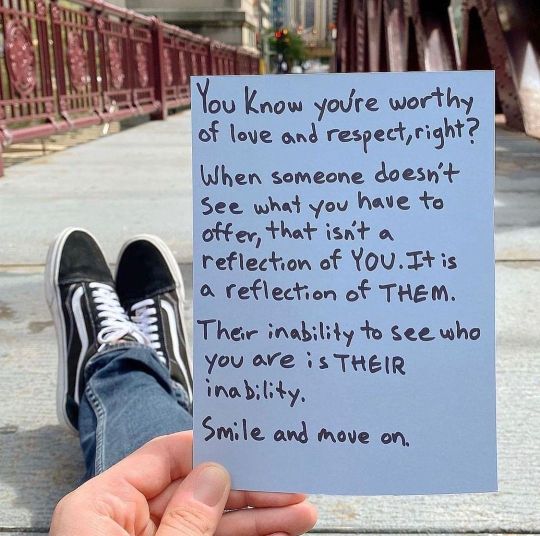 You Know you're worthy
of love and respect, right?
When someone doesn't
see what you have to
offer, that isn't a
reflection of YOU. It is
a reflection of THEM.
Their inability to see who
you are is THEIR
inability.
Smile and move on.